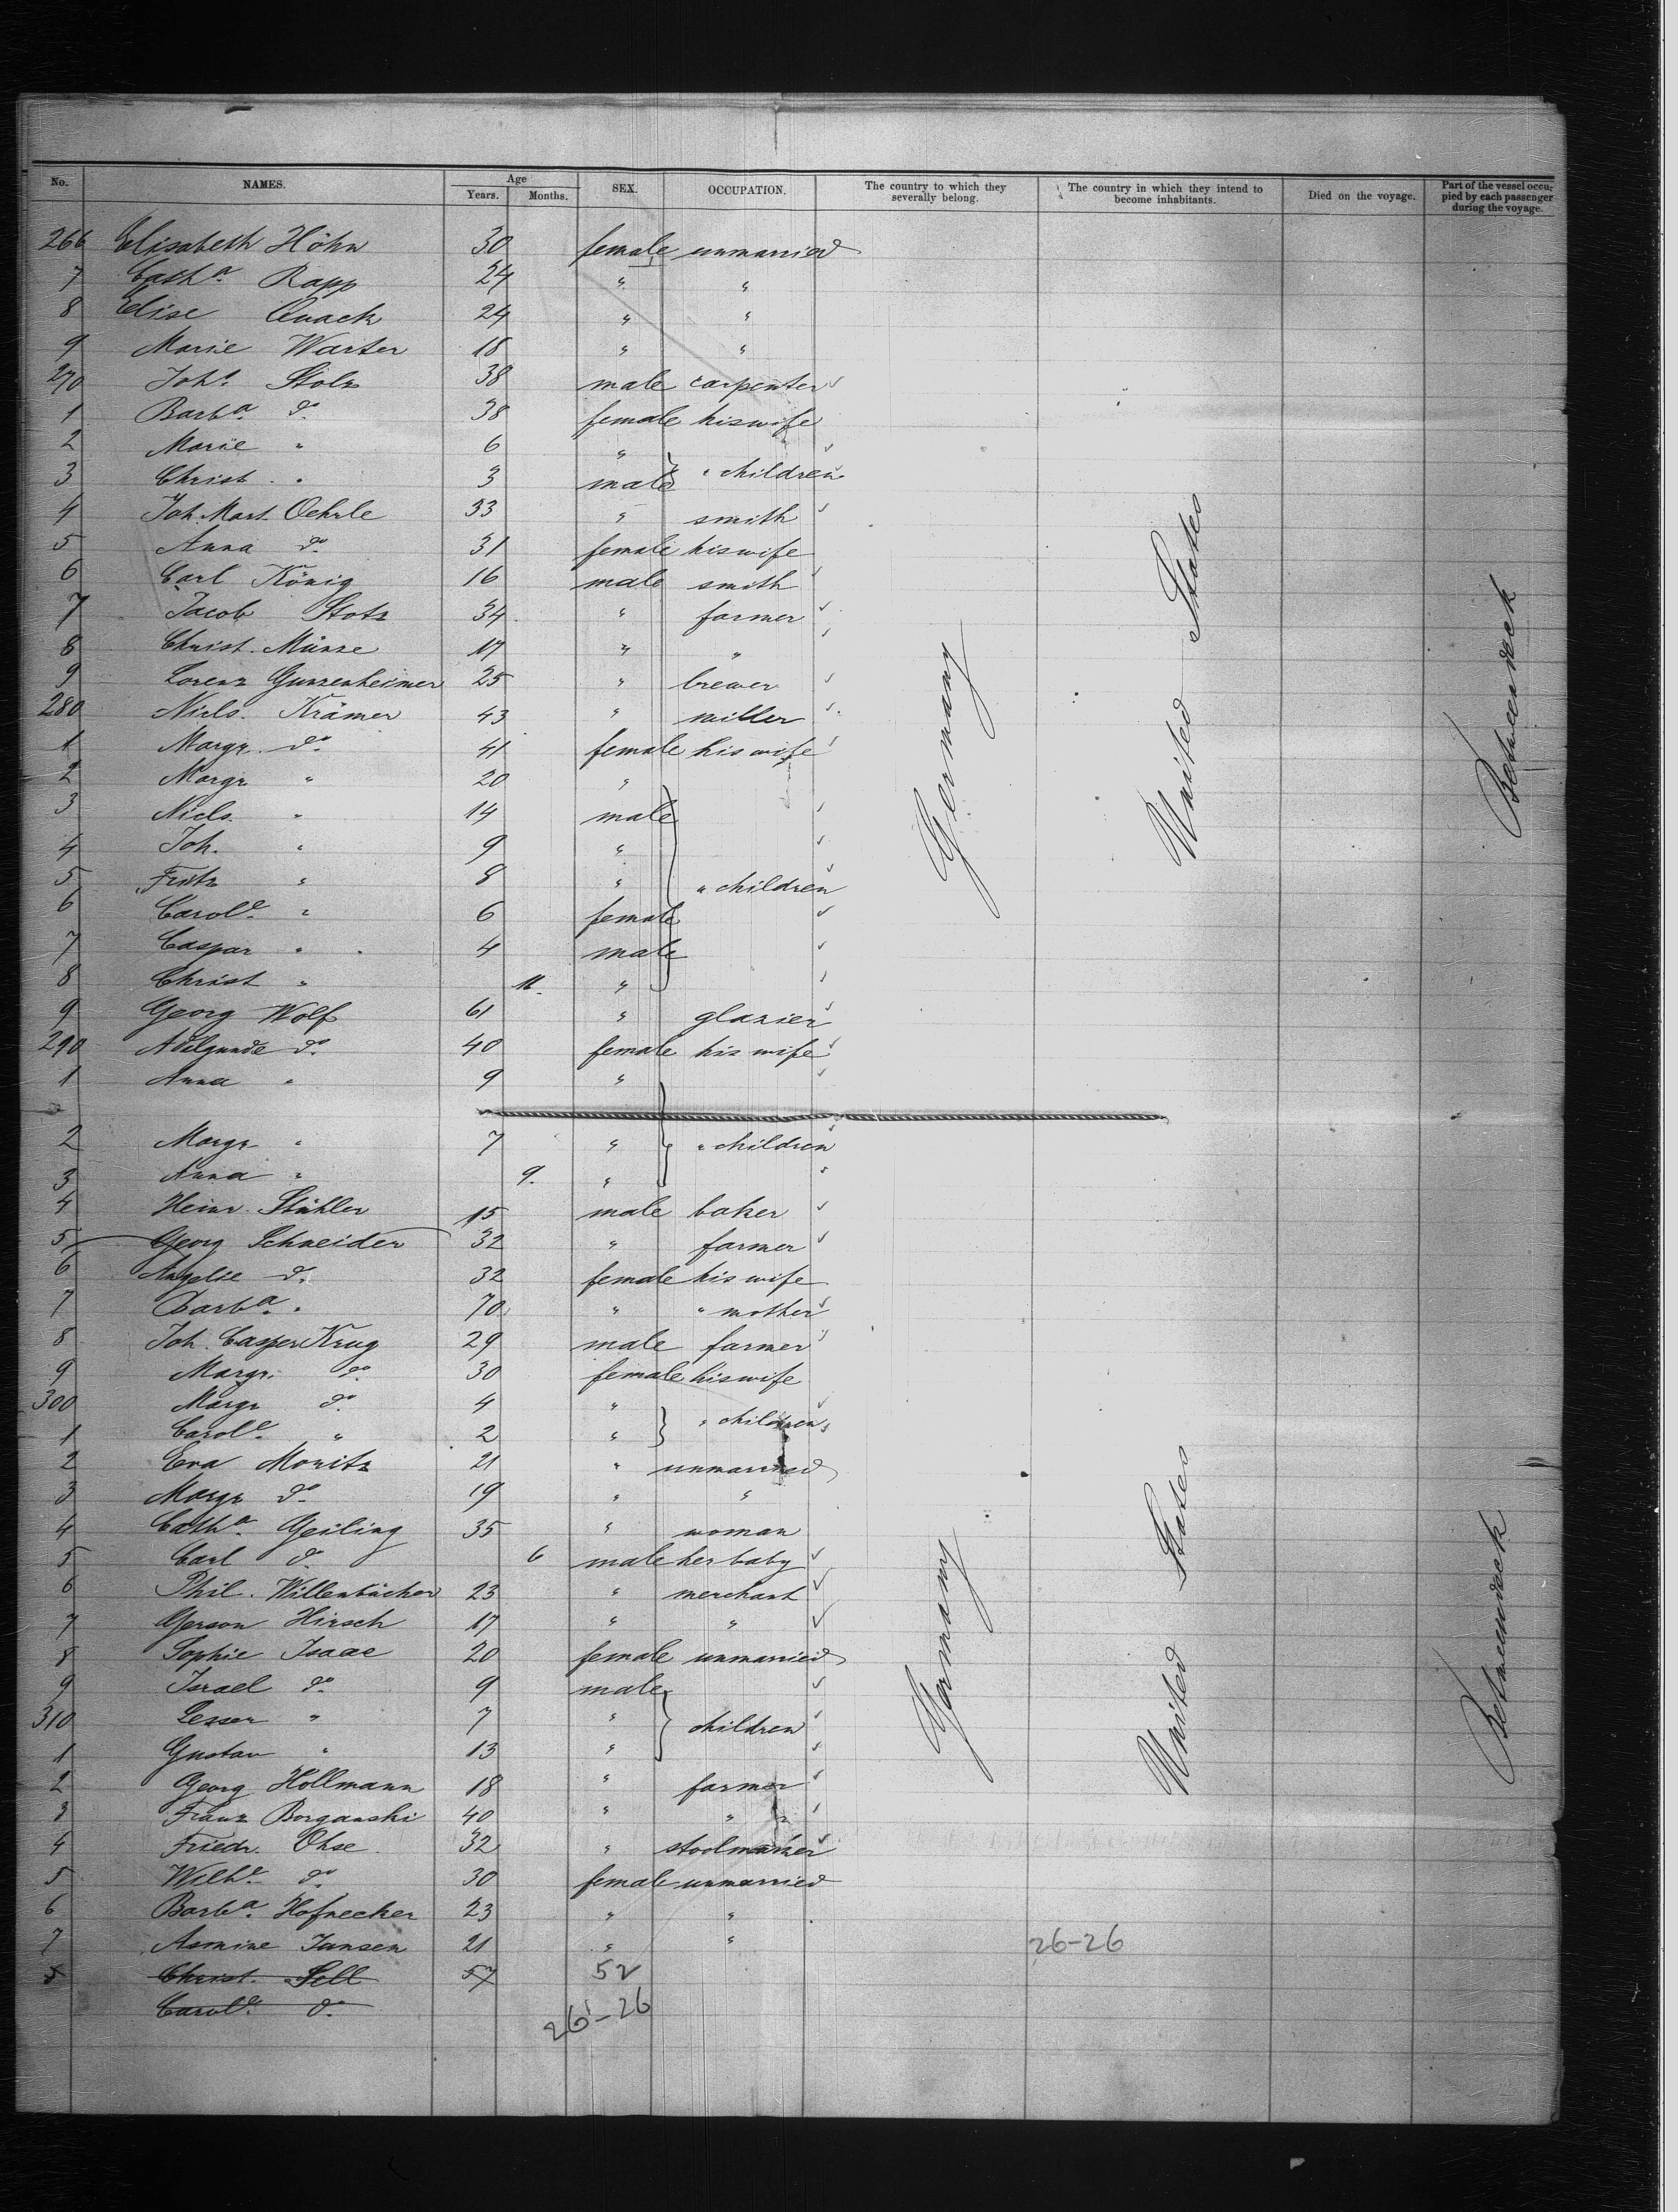 No. NAMES. Age Years. Months. SEX. OCCUPATION. The country to which they severally belong. The country in which they intend to become inhabitants. Died on the voyage. Part of the vessel occupied by each passenger during the voyage.
266 Elisabeth Höhn 30 female unmarried
7 Cath.a Rapp 24 " "
8 Elise Quack 24 " "
9 Marie Warter 18 " "
270 Joh.s Stolz 38 male carpenter
1 Barb.a do. 38 female his wife
2 Marie " 6 "
3 Christ. " 3 male " children
4 Joh. Mart. Oehrle 33 " smith
5 Anna do. 31 female his wife
6 Carl König 16 male smith
7 Jacob Stotz 34 " farmer
8 Christ. Münze 17 " "
9 Lorenz Gunzenheimer 25 " brewer
280 Nicls. Krämer 43 " miller
1 Margr. do. 41 female his wife
2 Margr " 20 "
3 Nicls. " 14 male
4 Joh. " 9 "
5 Fritz " 8 " " children
6 Carol.e " 6 female
7 Caspar " 4 male
8 Christ " 11. "
9 Georg Wolf 61 " glazier
290 Adelgunde do. 40 female his wife
1 Anna " 9 "
2 Margr " 7 " " children
3 Anna " 9. "
4 Heinr. Stähler 15 male baker
5 Georg Schneider 32 " farmer
6 Angelie do. 32 female his wife
7 Barb.a " 70 " " mother
8 Joh. Casper Krug 29 male farmer
9 Margr. do. 30 female his wife
300 Margr do. 4 " " children
1 Carol.e " 2 "
2 Eva Moritz 21 " unmarried
3 Margr do. 19 " "
4 Cath.a Geiling 35 " woman
5 Carl do. 6 male her baby
6 Phil. Willenbücher 23 " merchant
7 Gerson Hirsch 17 " "
8 Sophie Isaac 20 female unmarried
9 Israel do. 9 male
310 Lesser " 7 " children
1 Gustav " 13 "
2 Georg Hollmann 18 " farmer
3 Franz Borganski 40 " "
4 Friedr. Ohse 32 " stoolmaker
5 Wilh.e do. 30 female unmarried
6 Barb.a Hofnecker 23 " "
7 Asmine Jansen 21 " "
8 Christ. Sell 57 52
Carol.e do.
26-26
26-26
Germany
United States
Betweendeck
Germany
United States
Betweendeck